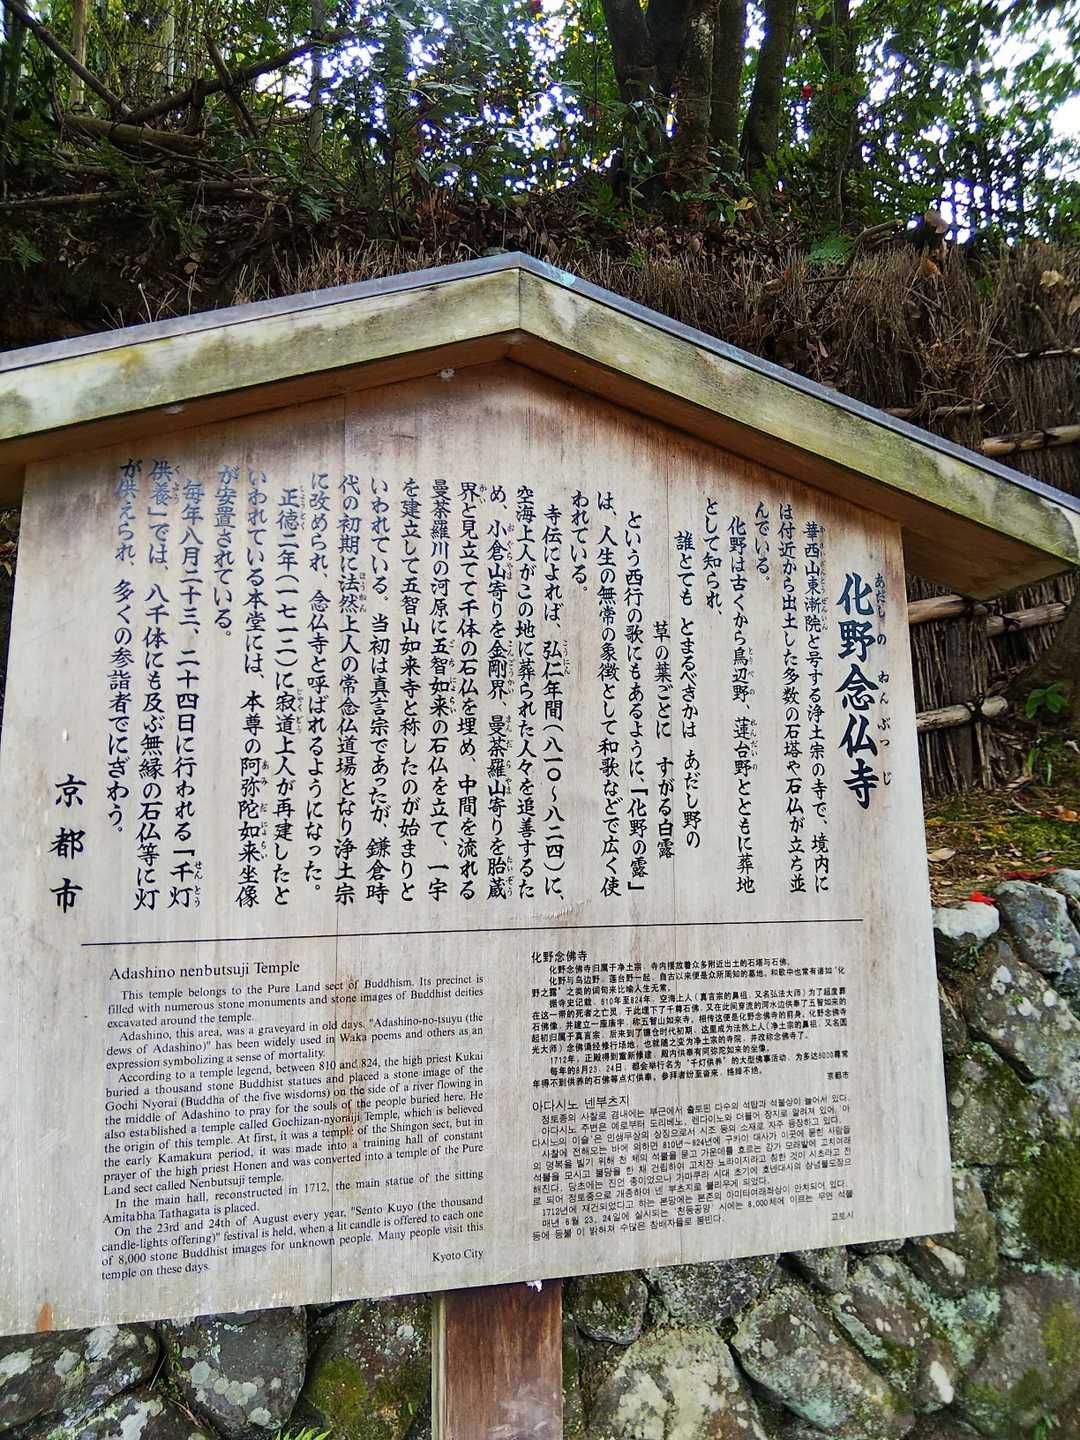 化野念仏寺
華西山東漸院と号する浄土宗の寺で、境内に
は付近から出土した多数の石塔や石仏が立ち並
んでいる。
化野は古くから鳥辺野、蓮台野とともに葬地
として知られ、
誰とても とまるべきかは あだし野の
草の葉ごとに すがる白露
という西行の歌にもあるように、「化野の露」
は、人生の無常の象徴として和歌などで広く使
われている。
寺伝によれば、弘仁年間（八一〇～八二四）に、
空海上人がこの地に葬られた人々を追善するた
め、小倉山寄りを金剛界、曼荼羅山寄りを胎蔵
界と見立てて千体の石仏を埋め、中間を流れる
曼荼羅川の河原に五智如来の石仏を立て、一宇
を建立して五智山如来寺と称したのが始まりと
いわれている。当初は真言宗であったが、鎌倉時
代の初期に法然上人の常念仏道場となり浄土宗
に改められ、念仏寺と呼ばれるようになった。
正徳二年（一七一二）に寂道上人が再建したと
いわれている本堂には、本尊の阿弥陀如来坐像
が安置されている。
毎年八月二十三、二十四日に行われる「千灯
供養」では、八千体にも及ぶ無縁の石仏等に灯
が供えられ、多くの参詣者でにぎわう。
京都市
Adashino nenbutsuji Temple
This temple belongs to the Pure Land sect of Buddhism. Its precinct is
filled with numerous stone monuments and stone images of Buddhist deities
excavated around the temple.
Adashino, this area, was a graveyard in old days. "Adashino-no-tsuyu (the
dews of Adashino)" has been widely used in Waka poems and others as an
expression symbolizing a sense of mortality.
According to a temple legend, between 810 and 824, the high priest Kukai
buried a thousand stone Buddhist statues and placed a stone image of the
Gochi Nyorai (Buddha of the five wisdoms) on the side of a river flowing in
the middle of Adashino to pray for the souls of the people buried here. He
also established a temple called Gochizan-nyoraiji Temple, which is believed
the origin of this temple. At first, it was a temple of the Shingon sect, but in
the early Kamakura period, it was made into a training hall of constant
prayer of the high priest Honen and was converted into a temple of the Pure
Land sect called Nenbutsuji temple.
In the main hall, reconstructed in 1712, the main statue of the sitting
Amitabha Tathagata is placed.
On the 23rd and 24th of August every year, "Sento Kuyo (the thousand
candle-lights offering)" festival is held, when a lit candle is offered to each one
of 8,000 stone Buddhist images for unknown people. Many people visit this
temple on these days.
Kyoto City
化野念佛寺
化野念佛寺归属于净土宗，寺内摆放着众多附近出土的石塔与石佛。
化野与鸟边野、莲台野一起，自古以来便是众所周知的墓地。和歌中也常有诸如"化
野之露"之类的词句来比喻人生无常。
据寺史记载，810年至824年，空海上人（真言宗的鼻祖，又名弘法大师）为了超度葬
在这一带的死者之亡灵，于此埋下了千尊石佛，又在此间穿流的河水边供奉了五智如来的
石佛像，并建立一座庙宇，称五智山如来寺。相传这便是化野念佛寺的前身。化野念佛寺
起初归属于真言宗，后来到了镰仓时代初期，这里成为法然上人（净土宗的鼻祖，又名圆
光大师）念佛诵经修行场地，也就随之变为净土宗的寺院，并改称念佛寺了。
1712年，正殿得到重新修建，殿内供奉有阿弥陀如来的坐像。
每年的8月23、24日，都会举行名为"千灯供养"的大型佛事活动，为多达8000尊常
年得不到供养的石佛等点灯供奉。参拜者纷至沓来，络绎不绝。
京都市
아다시노 넨부츠지
정토종의 사찰로 경내에는 부근에서 출토된 다수의 석탑과 석불상이 늘어서 있다.
아다시노 주변은 예로부터 도리베노, 렌다이노와 더불어 장지로 알려져 있어, '아
다시노의 이슬'은 인생무상의 상징으로서 시조 등의 소재로 자주 등장하고 있다.
사찰에 전해오는 바에 의하면 810년~824년에 구카이 대사가 이곳에 묻힌 사람들
의 명복을 빌기 위해 천 체의 석불을 묻고 가운데를 흐르는 강가 모래밭에 고치여래
석불을 모시고 불당을 한 채 건립하여 고치잔 뇨라이지라고 칭한 것이 시초라고 전
해진다. 당초에는 진언 종이었으나 가마쿠라 시대 초기에 호넨대사의 상념불도장으
로 되어 정토종으로 개종하여 넨 부츠지로 불리우게 되었다.
1712년에 재건되었다고 하는 본당에는 본존의 아미타여래좌상이 안치되어 있다.
매년 8월 23, 24일에 실시되는 '천등공양' 시에는 8,000체에 이르는 무연 석불
등에 등불 이 밝혀져 수많은 참배자들로 붐빈다.
교토시